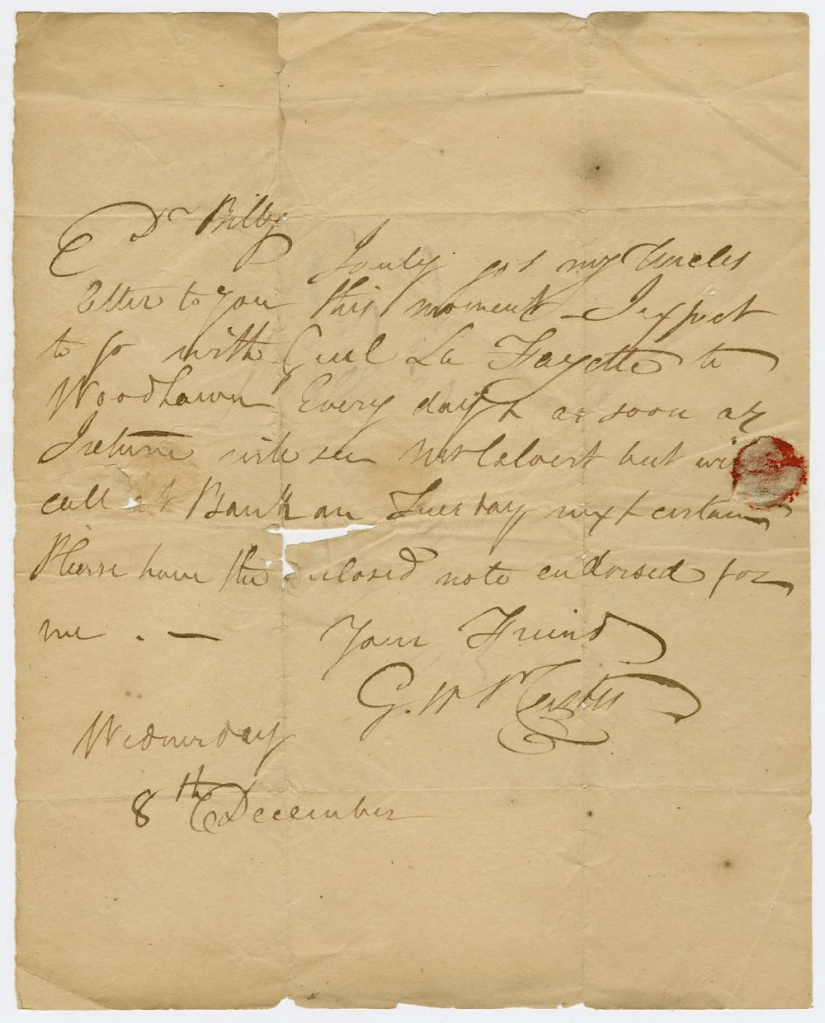 Dr Billy
I only got my Uncles
letter to you this moment – I expect
to go with Genl La Fayette to
Woodlawn Every day & as soon as
I return will see Mr Calvert but will
call at Bank on Tuesday next certain
Please have the enclosed note endorsed for
me . —    Your Friend
G. W P Custis
Wednesday
8th December